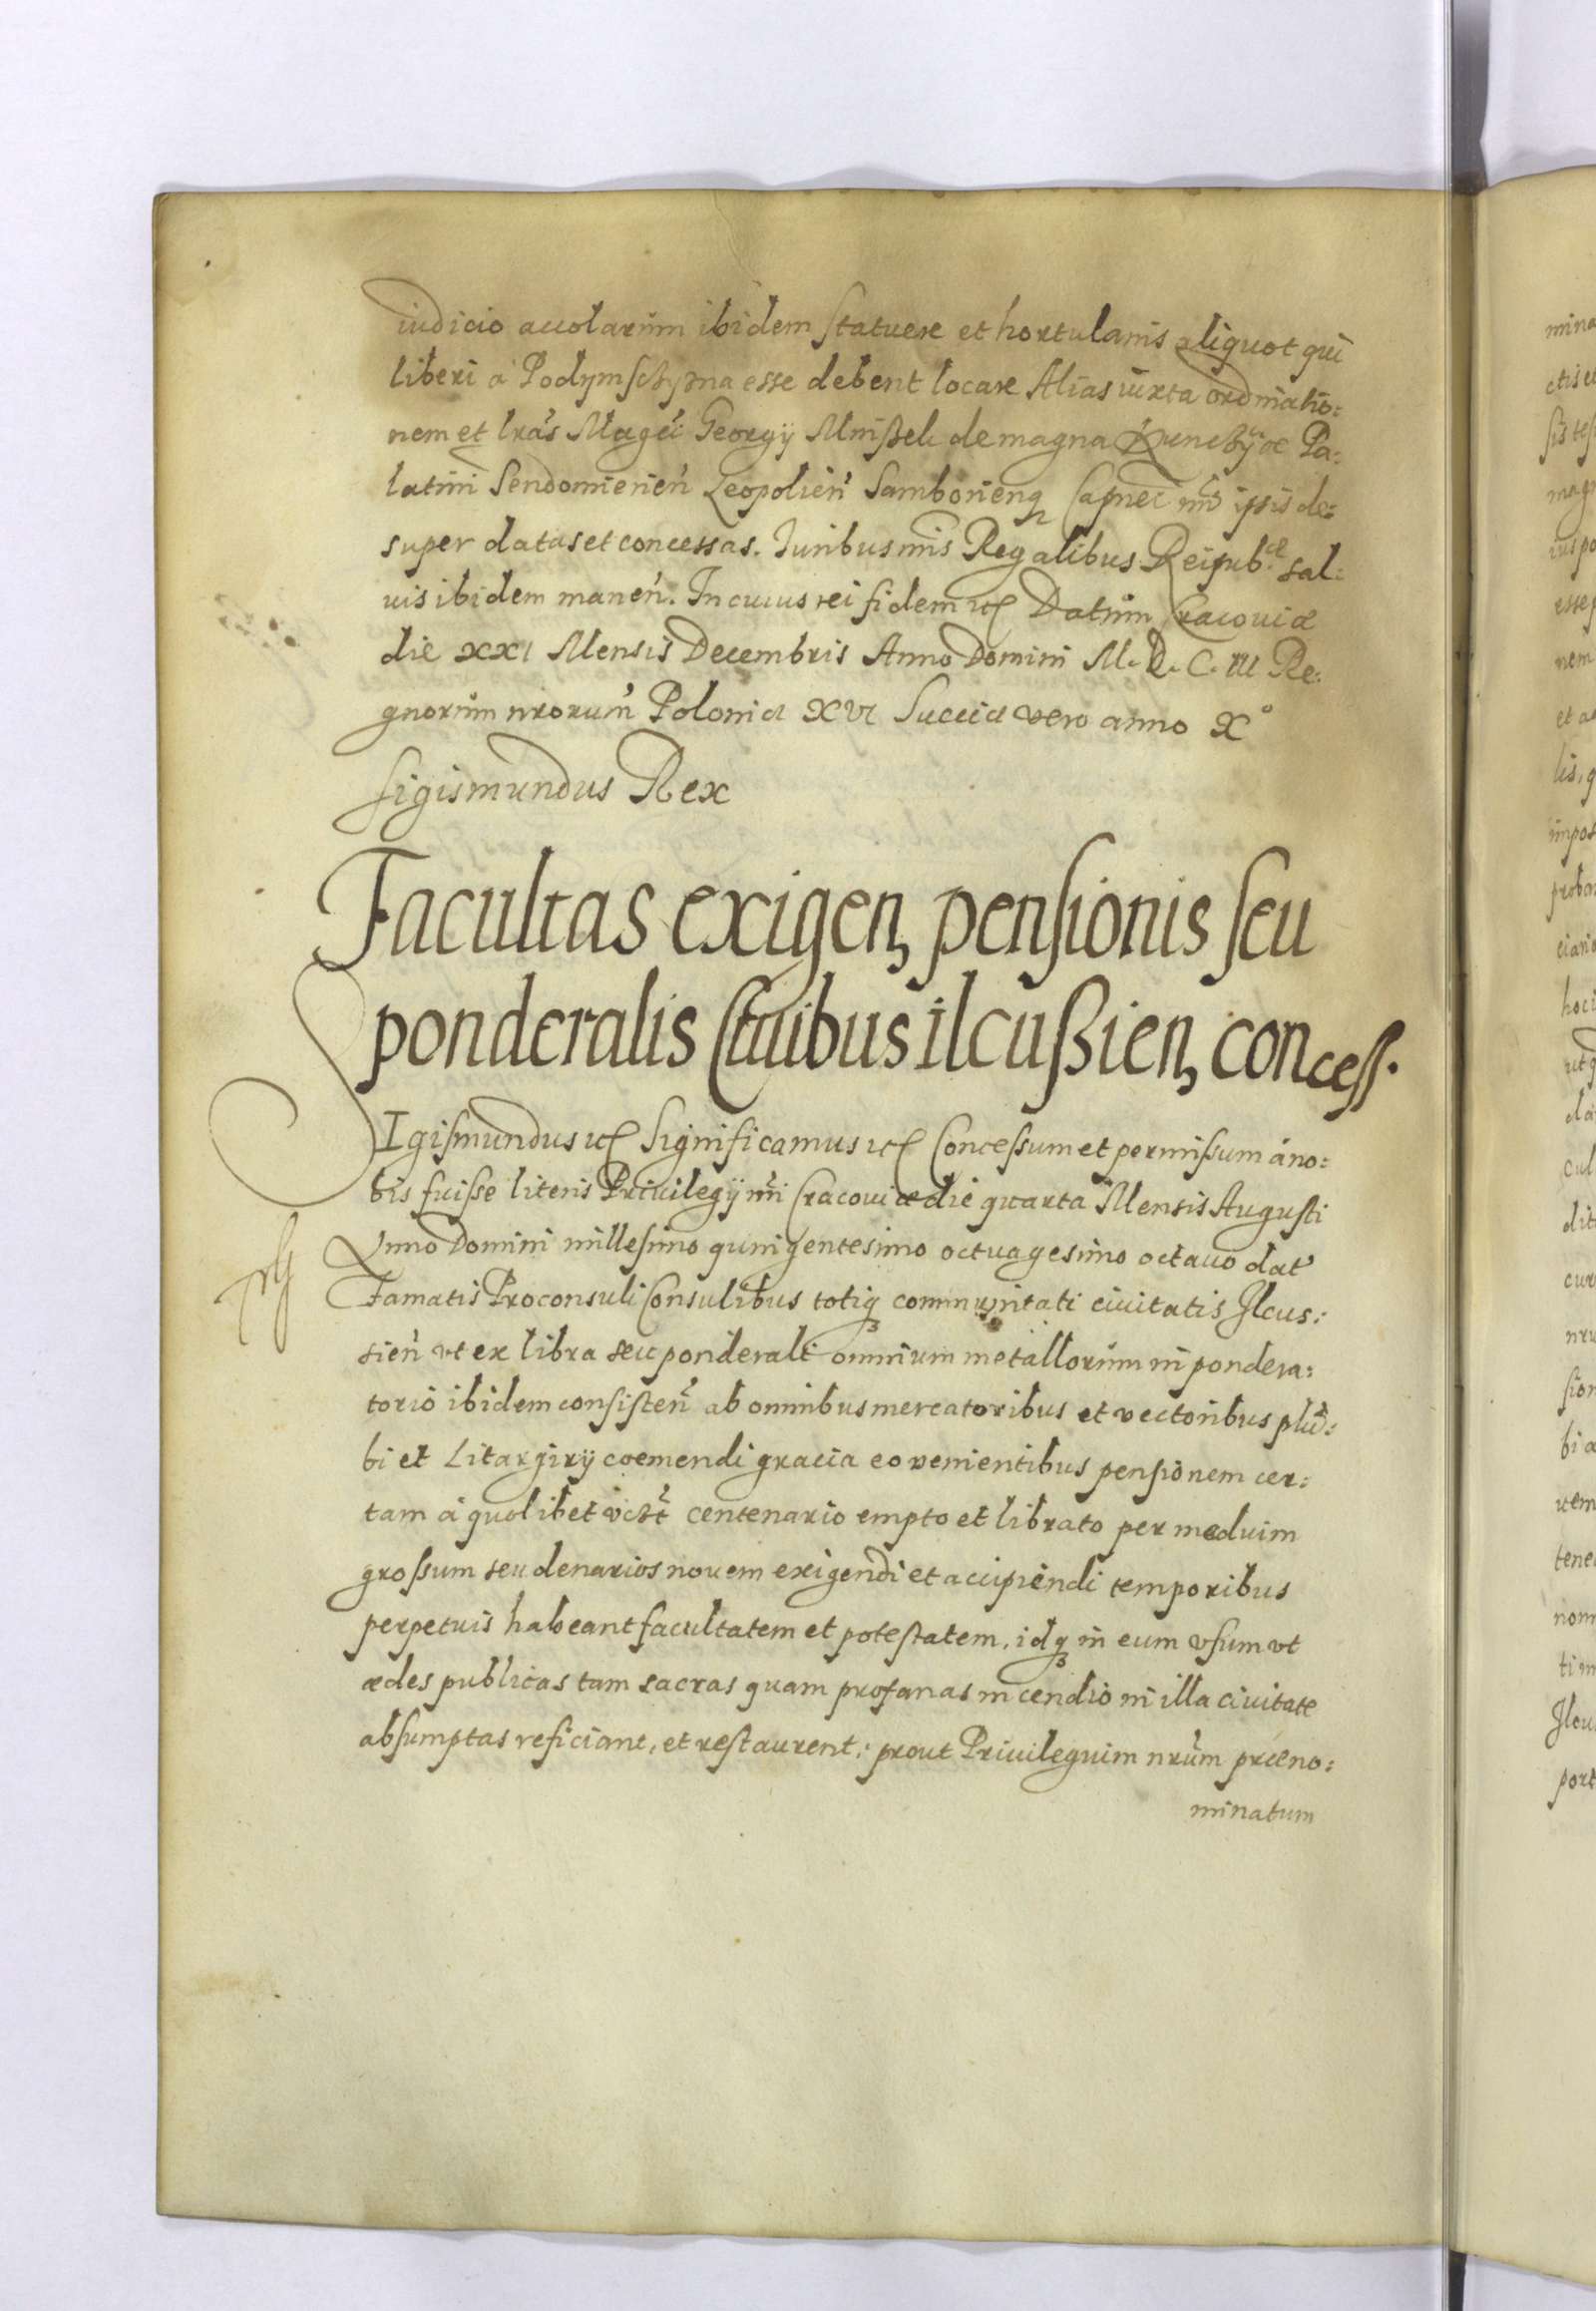 iudicio accolarum ibidem statuere et hortulanis aliquot qui
liberi a Podymschyzna esse debent locare Alias iuxta ordinatio:
nem et lras Magci Georgij Mnißek de magna Kunczyce Pa:
latini Sendomirien Leopolien Samborienq Capnei nri ipsis de:
super datas et concessas. Iuribus nris Regalibus Reipubcæ sal:
uis ibidem manen. In cuius rei fidem etc Datum Cracouiæ
die XXI Mensis Decembris Anno Domini M. D. C. III Re:
gnorum nrorum Poloniæ XVI Sueciæ vero anno X°
Sigismundus Rex
Facultas exigen, pensionis seu
ponderalis Ciuibus ilcußien, concess.
SIgismundus etc Significamus etc Concessum et permissum áno:
bis fuisse literis Priuilegij nri Cracouiæ die quarta Mensis Augusti
Anno Domini millesimo quingentesimo octuagesimo octauo dat
Famatis Proconsuli Consulibus totiq communitati ciuitatis Ilcus:
sien vt ex libra seu ponderali omnium metallorum in pondera:
torio ibidem consisten ab omnibus mercatoribus et vectoribus plu:
bi et Litargirij coemendi gracia eo venientibus pensionem cer:
tam á quolibet centenario empto et librato per medium
grossum seu denarios nouem exigendi et accipiendi temporibus
perpetuis habeant facultatem et potestatem, idq in eum vsum vt
ædes publicas tam sacras quam profanas incendio in illa ciuitate
absumptas reficiant, et restaurent: prout Priuilegium nrum præno:
minatum